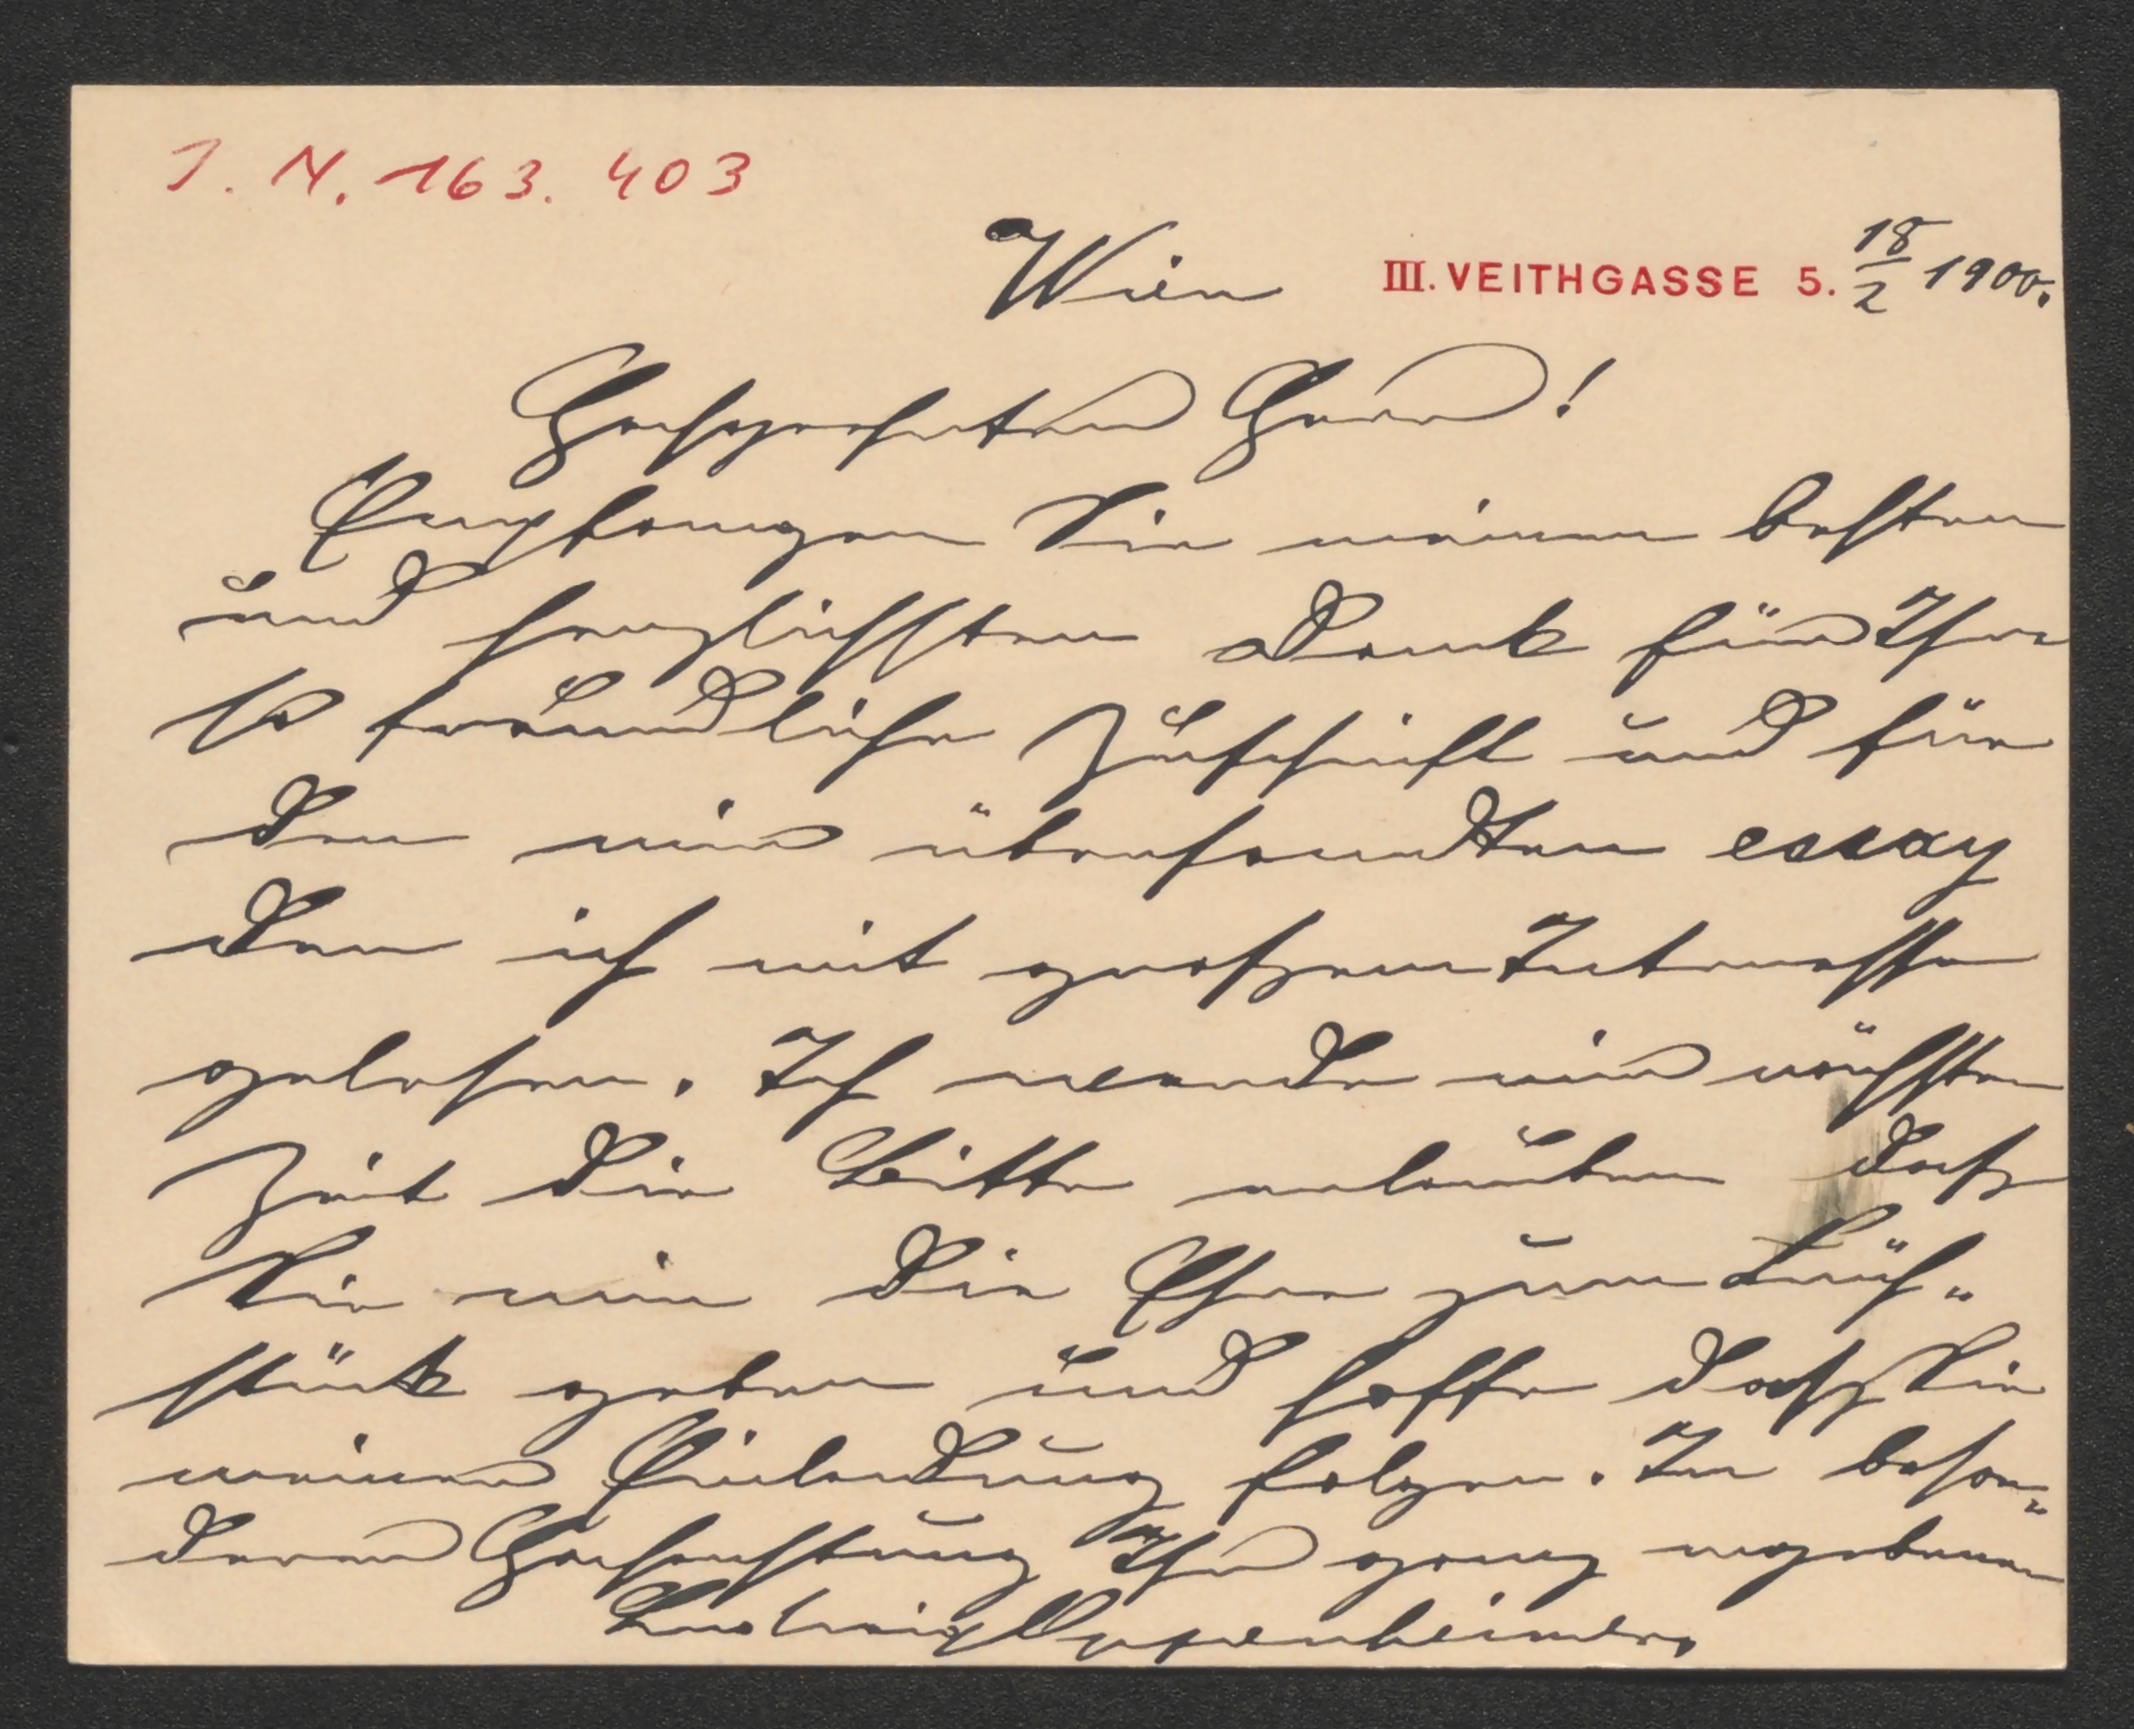 J. N. 163.403
Wien III. VEITHGASSE 5. 18/2 1900.
Hochgeehrter Herr!
Empfangen Sie meinen besten
und herzlichsten Dank für Ihre
so freundliche Zuschrift und für
den mir übersandten essay
den ich mit großem Interesse
gelesen. Ich werde mir nächster
Zeit die Bitte erlauben daß
Sie mir die Ehre zum Früh-
stück geben und hoffe daß Sie
meiner Einladung folgen. In beson-
derer Hochachtung Ihr ganz ergebener
Ludwig Oppenheimer.